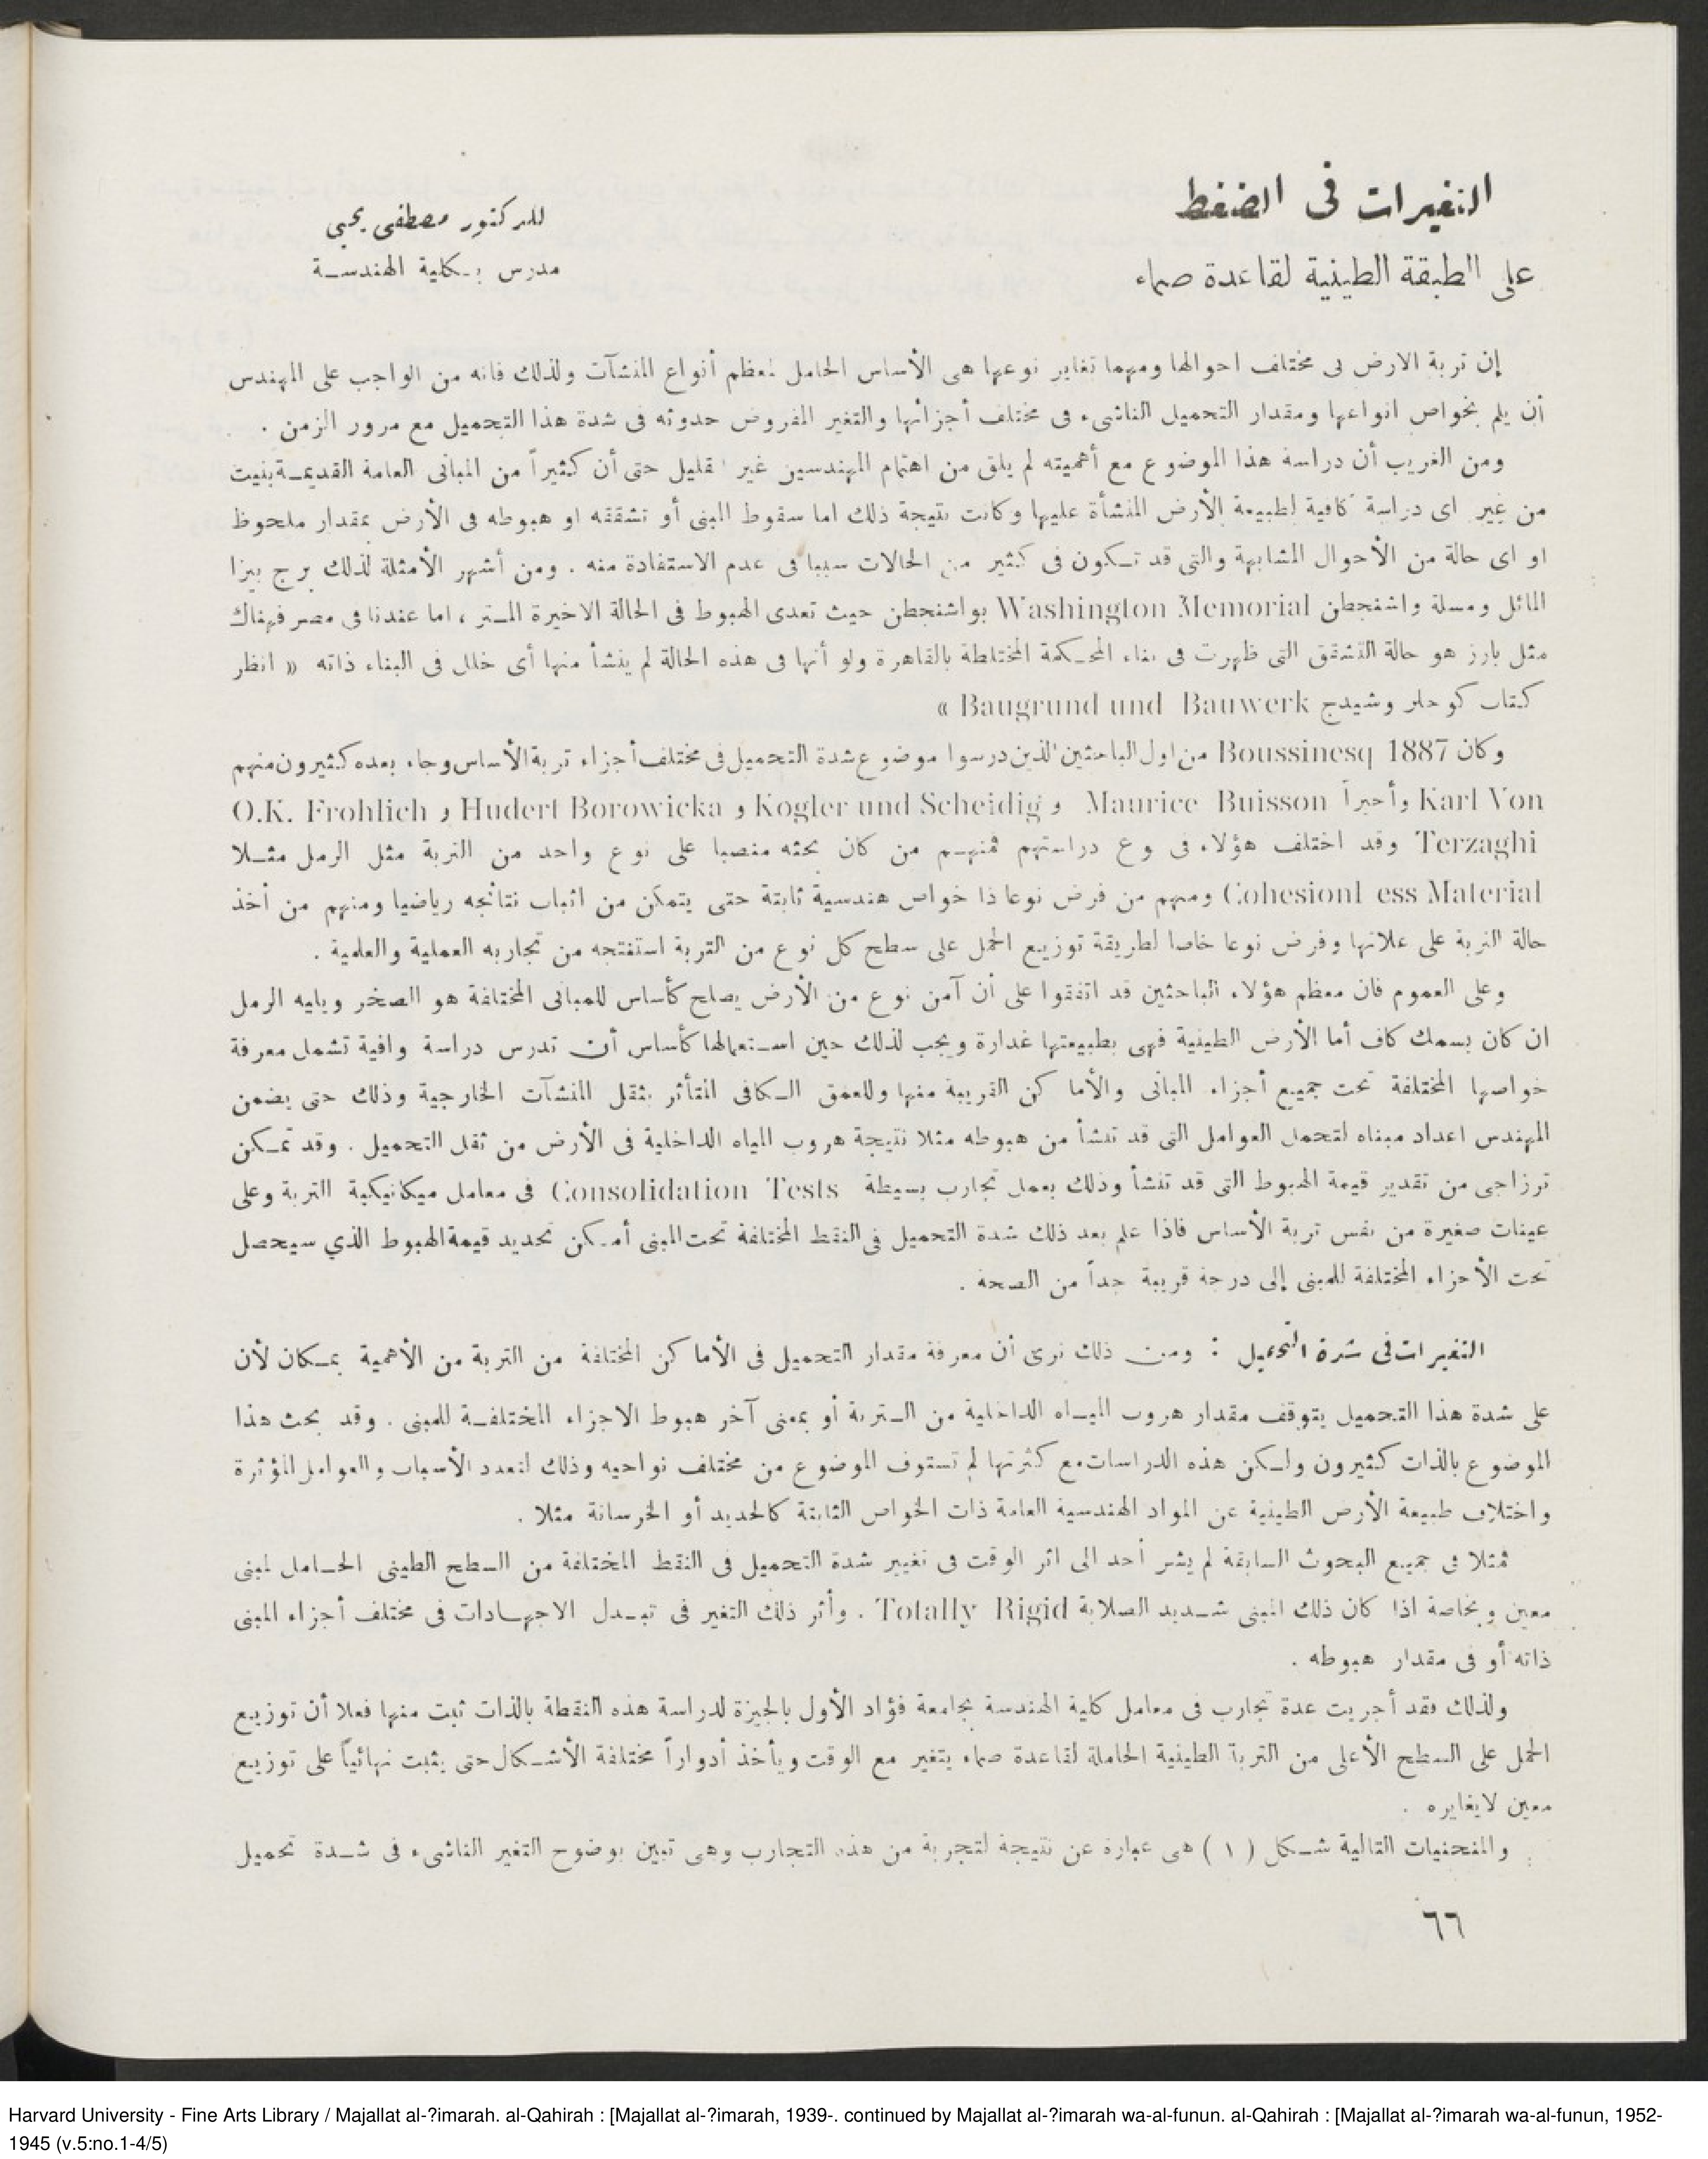 التغيرات فى الضغط
على الطبقة الطينية لقاعدة صماء
للدكتور مصطفى يحيى
مدرس بكلية الهندسة
إن تربة الارض فى مختلف احوالها ومهما تغاير نوعها هى الأساس الحامل لمعظم أنواع المنشآت ولذلك فانه من الواجب على المهندس
أن يلم بخواص انواعها ومقدار التحميل الناشىء فى مختلف أجزائها والتغير المفروض حدوثه فى شدة هذا التحميل مع مرور الزمن .
ومن الغريب أن دراسة هذا الموضوع مع أهميته لم يلق من اهتمام المهندسين غير القليل حتى أن كثيراً من المبانى العامة القديمة بنيت
من غير اى دراسة كافية لطبيعة الأرض المنشأة عليها وكانت نتيجة ذلك اما سقوط المبنى أو تشققه او هبوطه فى الأرض بمقدار ملحوظ
او اى حالة من الأحوال المشابهة والتى قد تكون فى كثير من الحالات سببا فى عدم الاستفادة منه . ومن أشهر الأمثلة لذلك برج بيزا
المائل ومسلة واشنجطن Washington Memorial بواشنجطن حيث تعدى الهبوط فى الحالة الاخيرة المتر ، اما عندنا فى مصر فهناك
مثل بارز هو حالة التشقق التى ظهرت فى بناء المحكمة المختلطة بالقاهرة ولو أنها فى هذه الحالة لم ينشأ منها أى خلل فى البناء ذاته « انظر
كتاب كوجلر وشيدج Baugrund und Bauwerk »
وكان Boussinesq 1887 من اول الباحثين الذين درسوا موضوع شدة التحميل فى مختلف أجزاء تربة الأساس وجاء بعده كثيرون منهم
O.K. Frohlich و Hudert Borowicka و Kogler und Scheidig و Maurice Buisson وأخيراً Karl Von
Terzaghi وقد اختلف هؤلاء فى نوع دراستهم فمنهم من كان بحثه منصبا على نوع واحد من التربة مثل الرمل مثلا
Cohesionl ess Material ومنهم من فرض نوعا ذا خواص هندسية ثابتة حتى يتمكن من اثبات نتائجه رياضيا ومنهم من أخذ
حالة التربة على علاتها وفرض نوعا خاصا لطريقة توزيع الحمل على سطح كل نوع من التربة استفتجه من تجاربه العملية والعلمية .
وعلى العموم فان معظم هؤلاء الباحثين قد اتفقوا على أن آمن نوع من الأرض يصلح كأساس للمبانى المختلفة هو الصخر ويليه الرمل
ان كان بسمك كاف أما الأرض الطينية فهى بطبيعتها غدارة ويجب لذلك حين استعمالها كأساس أن تدرس دراسة وافية تشمل معرفة
خواصها المختلفة تحت جميع أجزاء المبانى والأماكن القريبة منها وللعمق الكافى المتأثر بثقل المنشآت الخارجية وذلك حتى يضمن
المهندس اعداد مبناه لتحمل العوامل التى قد تنشأ من هبوطه مثلا نتيجة هروب المياه الداخلية فى الأرض من ثقل التحميل . وقد تمكن
ترزاجى من تقدير قيمة الهبوط التى قد تنشأ وذلك بعمل تجارب بسيطة Consolidation Tests فى معامل ميكانيكية التربة وعلى
عينات صغيرة من نفس تربة الأساس فاذا علم بعد ذلك شدة التحميل فى النقط المختلفة تحت المبنى أمكن تحديد قيمة الهبوط الذي سيحصل
تحت الأجزاء المختلفة للمبنى إلى درجة قريبة جداً من الصحة .
التغيرات فى شدة التحميل : ومن ذلك نرى أن معرفة مقدار التحميل فى الأماكن المختلفة من التربة من الأهمية بمكان لأن
على شدة هذا التحميل يتوقف مقدار هروب المياه الداخلية من التربة أو بمعنى آخر هبوط الاجزاء المختلفة للمبنى . وقد بحث هذا
الموضوع بالذات كثيرون ولكن هذه الدراسات مع كثرتها لم تستوف الموضوع من مختلف نواحيه وذلك لتعدد الأسباب والعوامل المؤثرة
واختلاف طبيعة الأرض الطينية عن المواد الهندسية العامة ذات الخواص الثابتة كالحديد أو الخرسانة مثلا .
فمثلا فى جميع البحوث السابقة لم يشر أحد الى اثر الوقت فى تغيير شدة التحميل فى النقط المختلفة من السطح الطينى الحامل لمبنى
معين وبخاصة اذا كان ذلك المبنى شديد الصلابة Totally Rigid . وأثر ذلك التغير فى تبدل الاجهادات فى مختلف أجزاء المبنى
ذاته أو فى مقدار هبوطه .
ولذلك فقد أجريت عدة تجارب فى معامل كلية الهندسة بجامعة فؤاد الأول بالجيزة لدراسة هذه النقطة بالذات ثبت منها فعلا أن توزيع
الحمل على السطح الأعلى من التربة الطينية الحاملة لقاعدة صماء يتغير مع الوقت ويأخذ أدواراً مختلفة الأشكال حتى يثبت نهائياً على توزيع
معين لايغايره .
والمنحنيات التالية شكل ( ١ ) هى عبارة عن نتيجة لتجربة من هذه التجارب وهى تبين بوضوح التغير الناشىء فى شدة تحميل
٦٦
Harvard University - Fine Arts Library / Majallat al-?imarah. al-Qahirah : [Majallat al-?imarah, 1939-. continued by Majallat al-?imarah wa-al-funun. al-Qahirah : [Majallat al-?imarah wa-al-funun, 1952-
1945 (v.5:no.1-4/5)